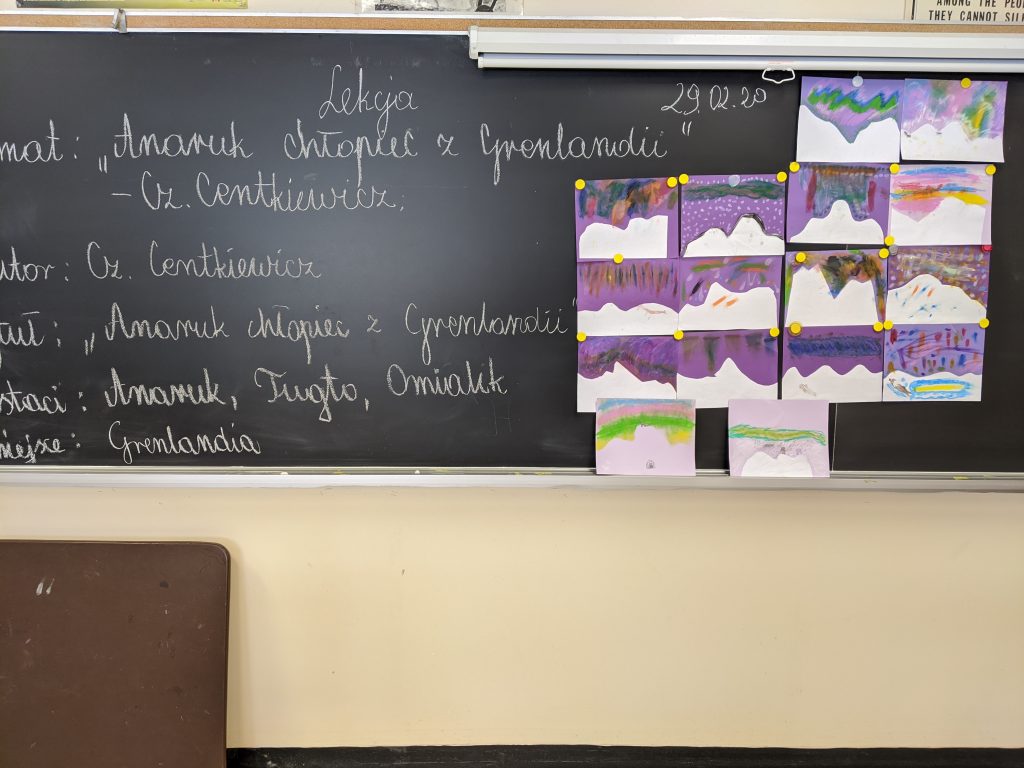 AMONG THE PEO
THEY CANNOT SIL
Lekcja 29.02.20
mat: „Anaruk chłopiec z Grenlandii"
– Cz. Centkiewicz;
utor: Cz. Centkiewicz
tuł: „Anaruk chłopiec z Grenlandii"
staci: Anaruk, Tugto, Omialik
niejsze: Grenlandia